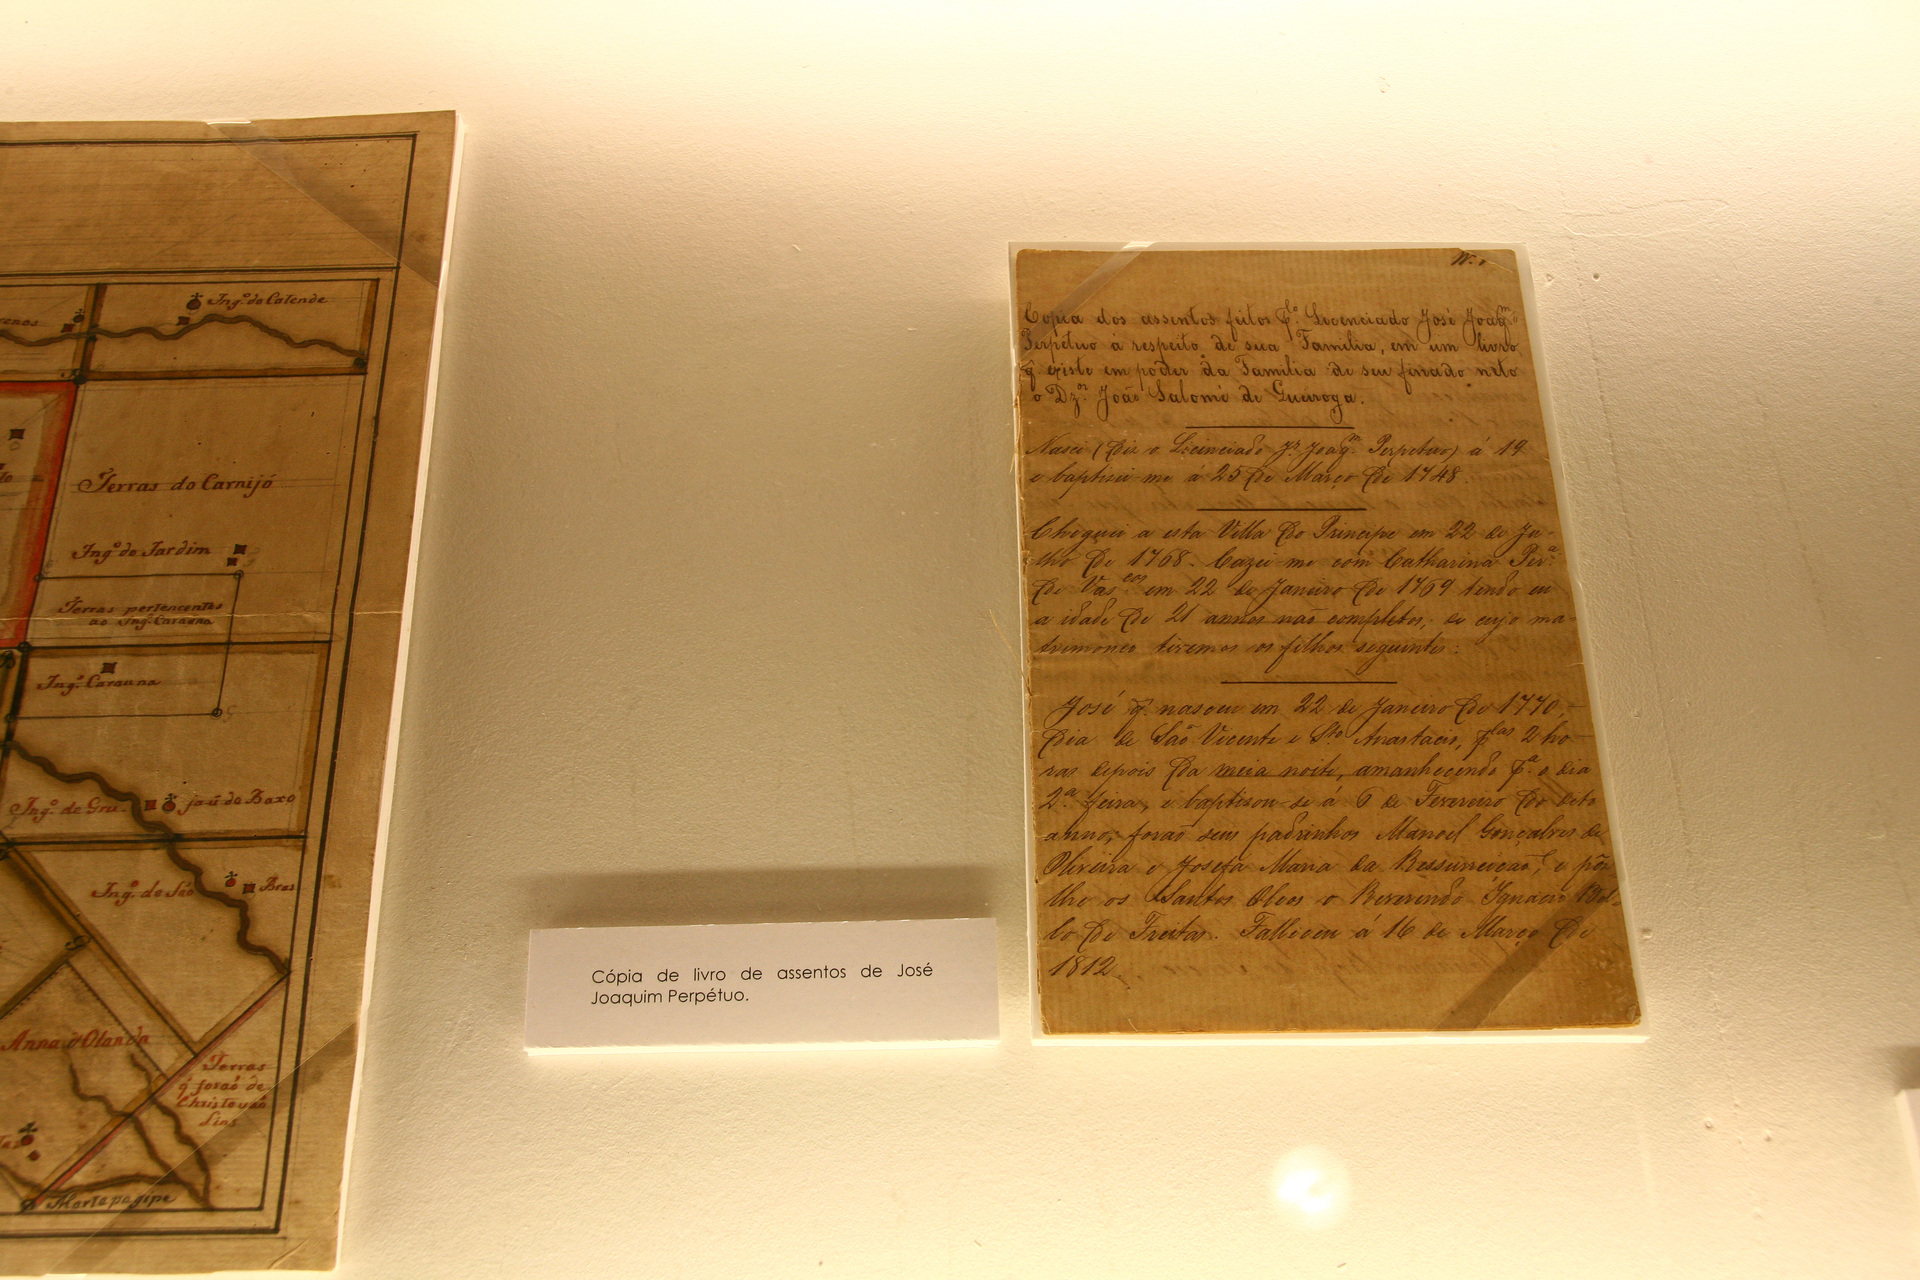 Ing.º do Catende
Terras do Carnijó
Ing.º do Jardim
Terras pertencentes
ao Ing.º Carauna
Ing.º Carauna
Ing.º de Gru- jaú de Baxo
Ing.º de São Bras
Anna d'Olanda
Terras
q' foraõ de
Christouaõ
Lins
Mortapagipe
Cópia de livro de assentos de José
Joaquim Perpétuo.
Nº 1
Copia dos assentos feitos p.lo Licenciado José Joaq.m
Perpetuo á respeito de sua Familia, em um livro,
q. existe em poder da Familia de seu finado neto
o D.or João Salomé de Queiroga.
Nasci (diz o Licenciado J.e Joaq.m Perpetuo) á 19
e baptisei-me á 25 de Março de 1748.
Cheguei a esta Villa do Principe em 22 de Ju-
lho de 1768. Cazei-me com Catharina Per.a
de Vas.cos em 22 de Janeiro de 1769 tendo eu
a idade de 21 annos não completos, de cujo ma-
trimonio tivemos os filhos seguintes:
José q. nasceu em 22 de Janeiro de 1770,
dia de São Vicente e Sto Anastacio, p.las 2 ho-
ras depois da meia noite, amanhecendo p.a o dia
2.ª feira, e baptisou-se á 6 de Fevereiro do dito
anno, forão seus padrinhos Manoel Gonçalves de
Oliveira e Josefa Maria da Ressurreição, e pôz-
lhe os Santos Oleos o Reverendo Ignacio
de Freitas. Falleceu á 16 de Março de
1812.